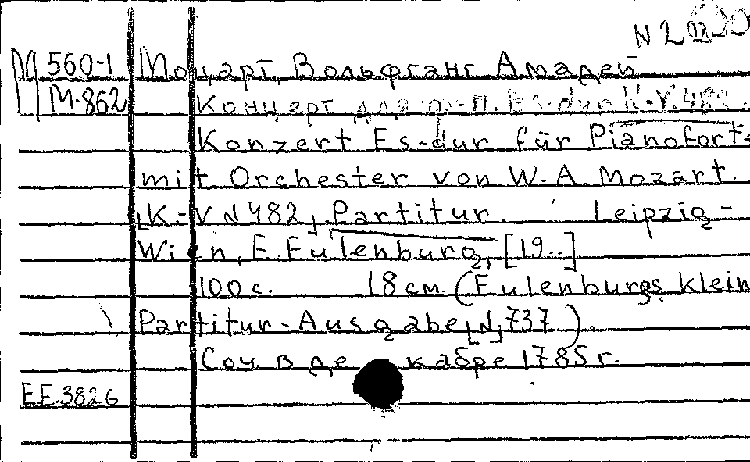 М 560-1 Моцарт, Вольфганг Амадей
М-862 Концерт для ф-п. Es-dur K.-V. 482
Konzert Es-dur für Pianoforte
mit Orchester von W. A. Mozart.
K.-V N 482, Partitur. Leipzig-
Wien, E. Eulenburg, [19..]
100 с. 18 см. (Eulenburgs klein
Partitur-Ausgabe, N 737).
Соч. в декабре 1785 г.
EE 3826